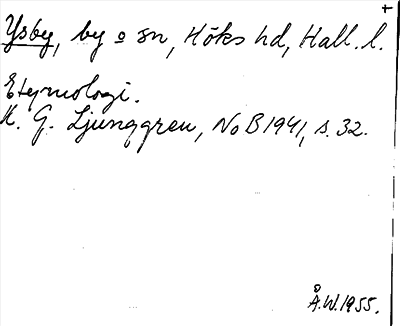 Ysby, by o sn, Höks hd, Hall. l.
Etymologi.
K. G. Ljunggren, NoB 1941, s. 32.
Å.W. 1955.